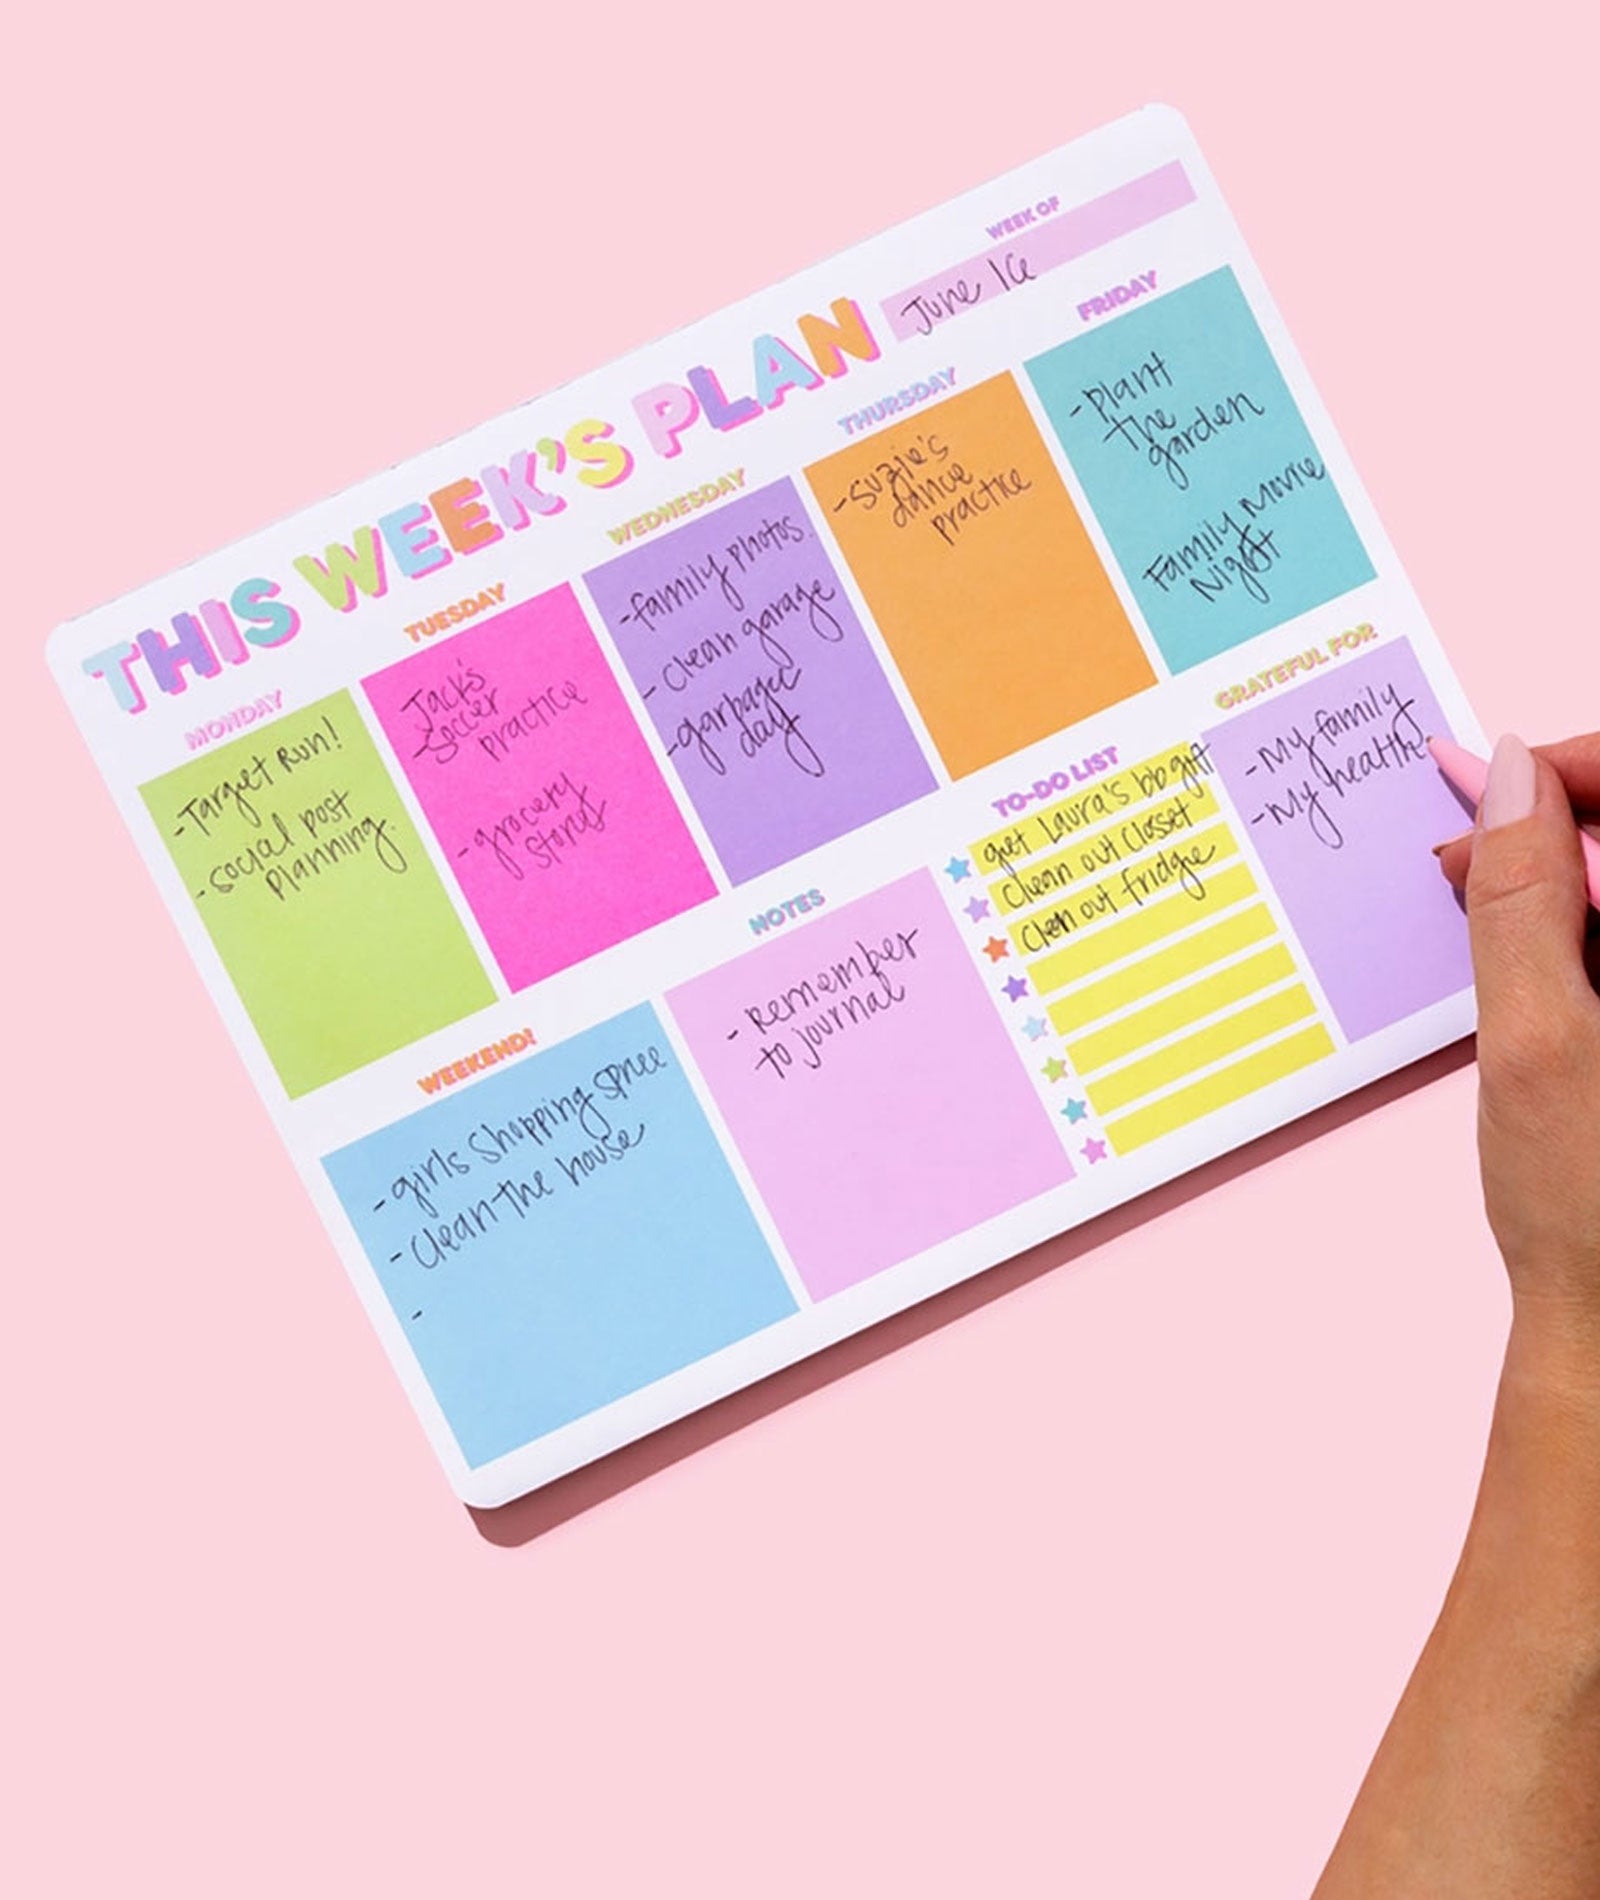 THIS WEEK'S PLAN
WEEK OF
June 16
MONDAY
- Target Run!
- social post
planning.
TUESDAY
Jack's
- soccer
practice
- grocery
WEDNESDAY
- family photos.
- clean garage
- garbage
day
THURSDAY
- Suzie's
dance
practice
FRIDAY
- Plant
the
garden
Family Movie
Night
WEEKEND!
- girls shopping spree
- Clean the house
-
NOTES
- Remember
to journal
TO-DO LIST
get Laura's bb gift
Clean out closet
Clean out fridge
GRATEFUL FOR
- My family
- My health